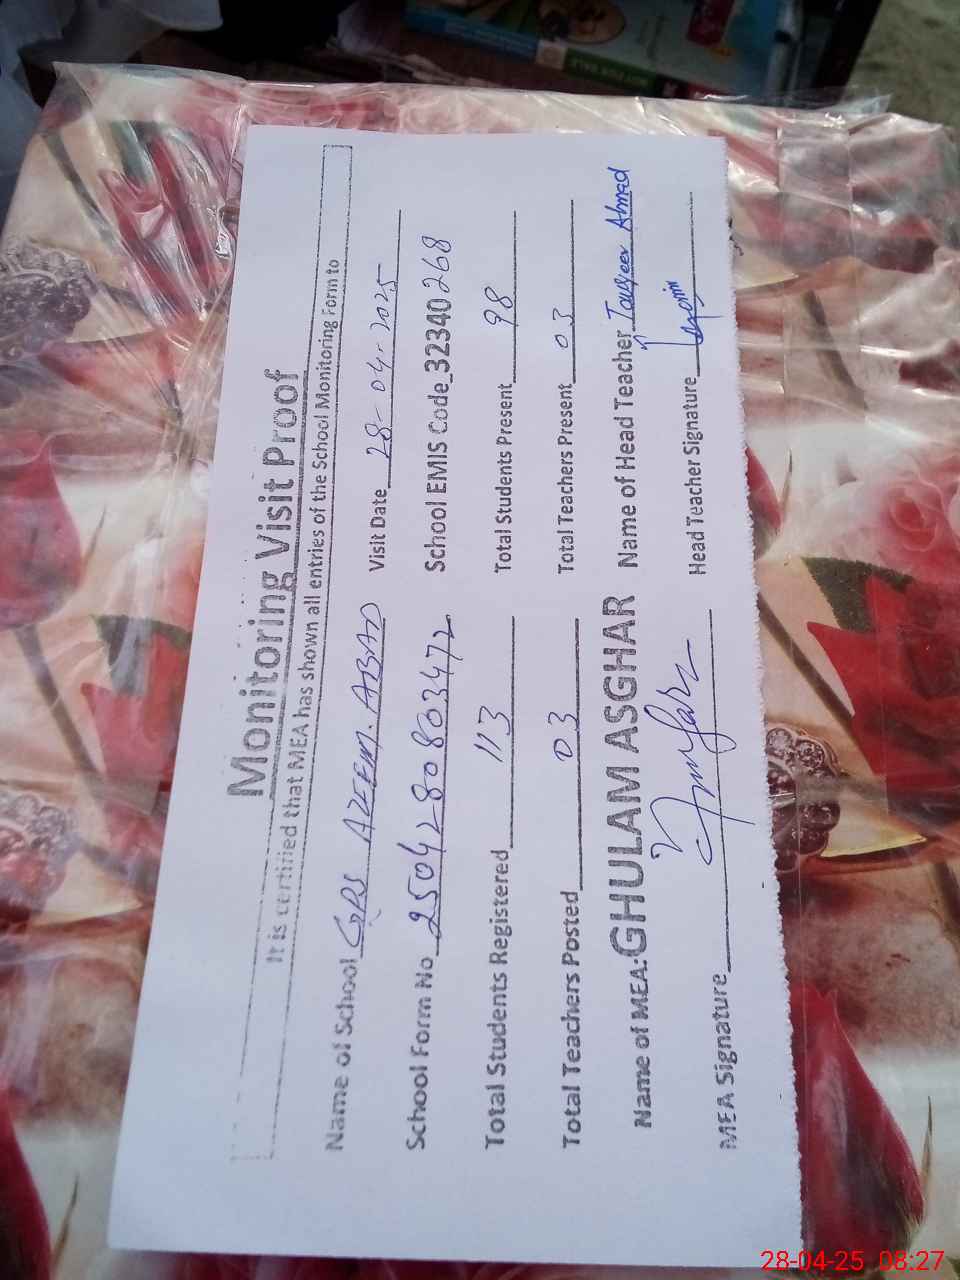 Monitoring Visit Proof
It is certified that MEA has shown all entries of the School Monitoring Form to
Name of School GPS AZEEM.ABAD Visit Date 28-04-2025
School Form No 2504280803472 School EMIS Code 32340268
Total Students Registered 113 Total Students Present 98
Total Teachers Posted 03 Total Teachers Present 03
Name of MEA: GHULAM ASGHAR Name of Head Teacher Tauqeer Ahmad
MEA Signature Head Teacher Signature
NOT FOR SALE
28-04-25 08:27